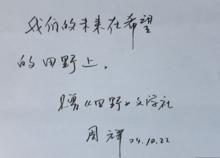 我们的未来在希望
的田野上。
题赠《田野》文学社
周祥 24.10.22